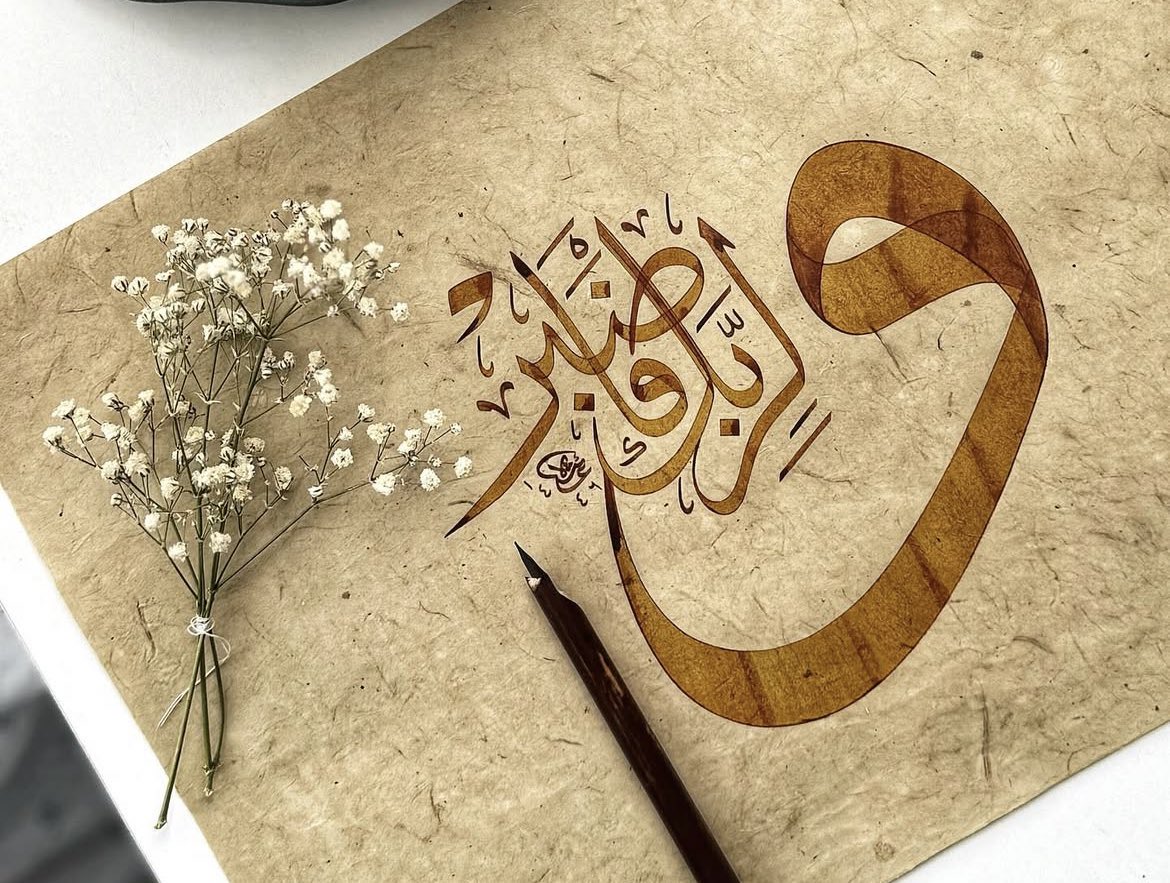 وَلِرَبِّكَ فَاصْبِرْ